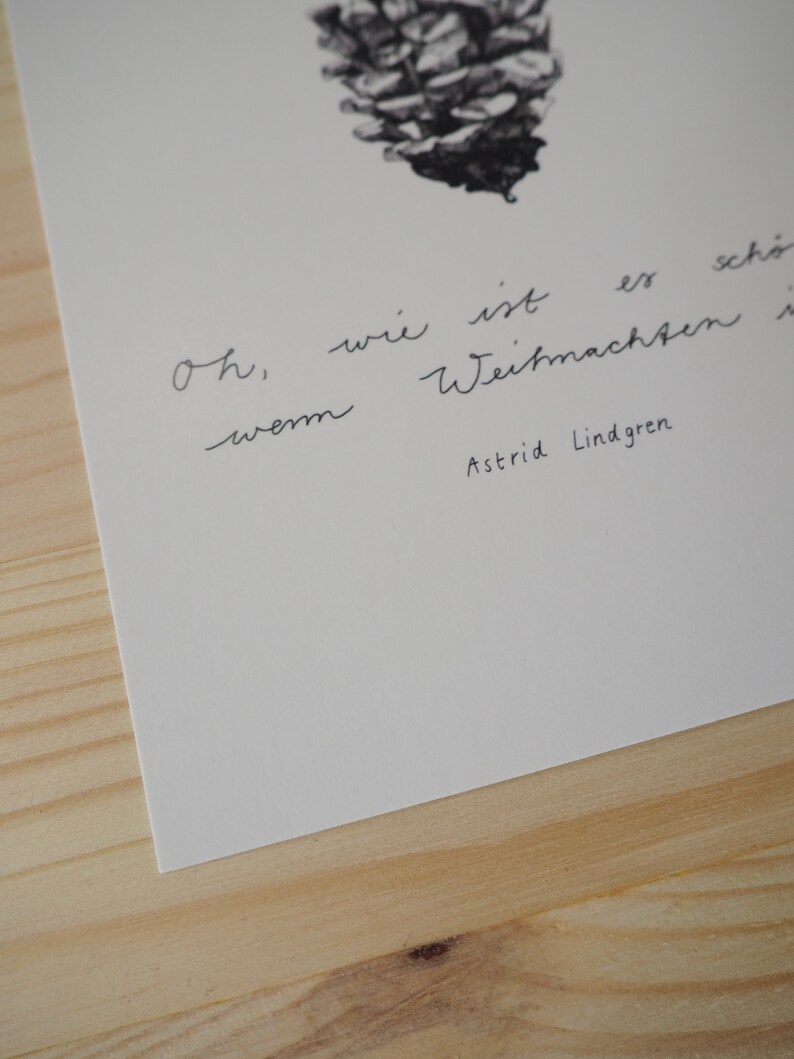 Oh, wie ist es schö
wenn Weihnachten i
Astrid Lindgren